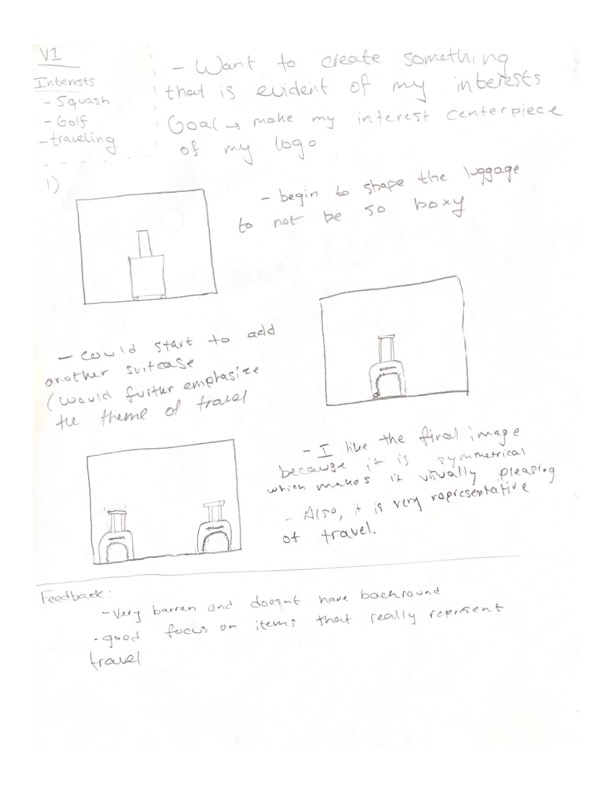 V1
Interests
- Squash
- Golf
- traveling
- Want to create something
that is evident of my interests
Goal → make my interest centerpiece
of my logo
1)
- begin to shape the luggage
to not be so boxy
- Could start to add
another suitcase
(would further emphasize
the theme of travel
- I like the final image
because it is symmetrical
which makes it visually pleasing
- Also, it is very representative
of travel.
Feedback:
- Very barren and doesnt have backround
- good focus on items that really represent
travel